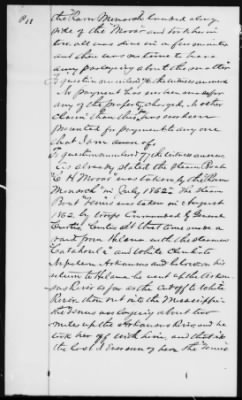 the Ram Monarch landed along
side of the "Moro" and took her in
tow all was done in a few minutes
and there was no time to have
any parleying about the matter
To question numbered to the witness answers
No payment has ever been made for
any of the property charged, no other
claim than this has ever been
presented for payment by any one
that I am aware of
To question numbered the witness answers
As already stated the Steam Boat
"L H Moro" was taken by the Ram
Monarch in July 1862. The Steam
Boat "Tenn" was taken in August
1862 by troops Commanded by General
Curtis Curtis at that time made a
raid from Helena with the steamer
"Catahoula" and White Cloud to
Napoleon Arkansas and before his
return to Helena he went up the Arkan-
sas River as far as the cutoff to White
River, then out into the Mississippi
the Tenn was laying about two
miles up the Arkansas River and he
took her off with him, and that is
the last I ever saw of her the Tenn